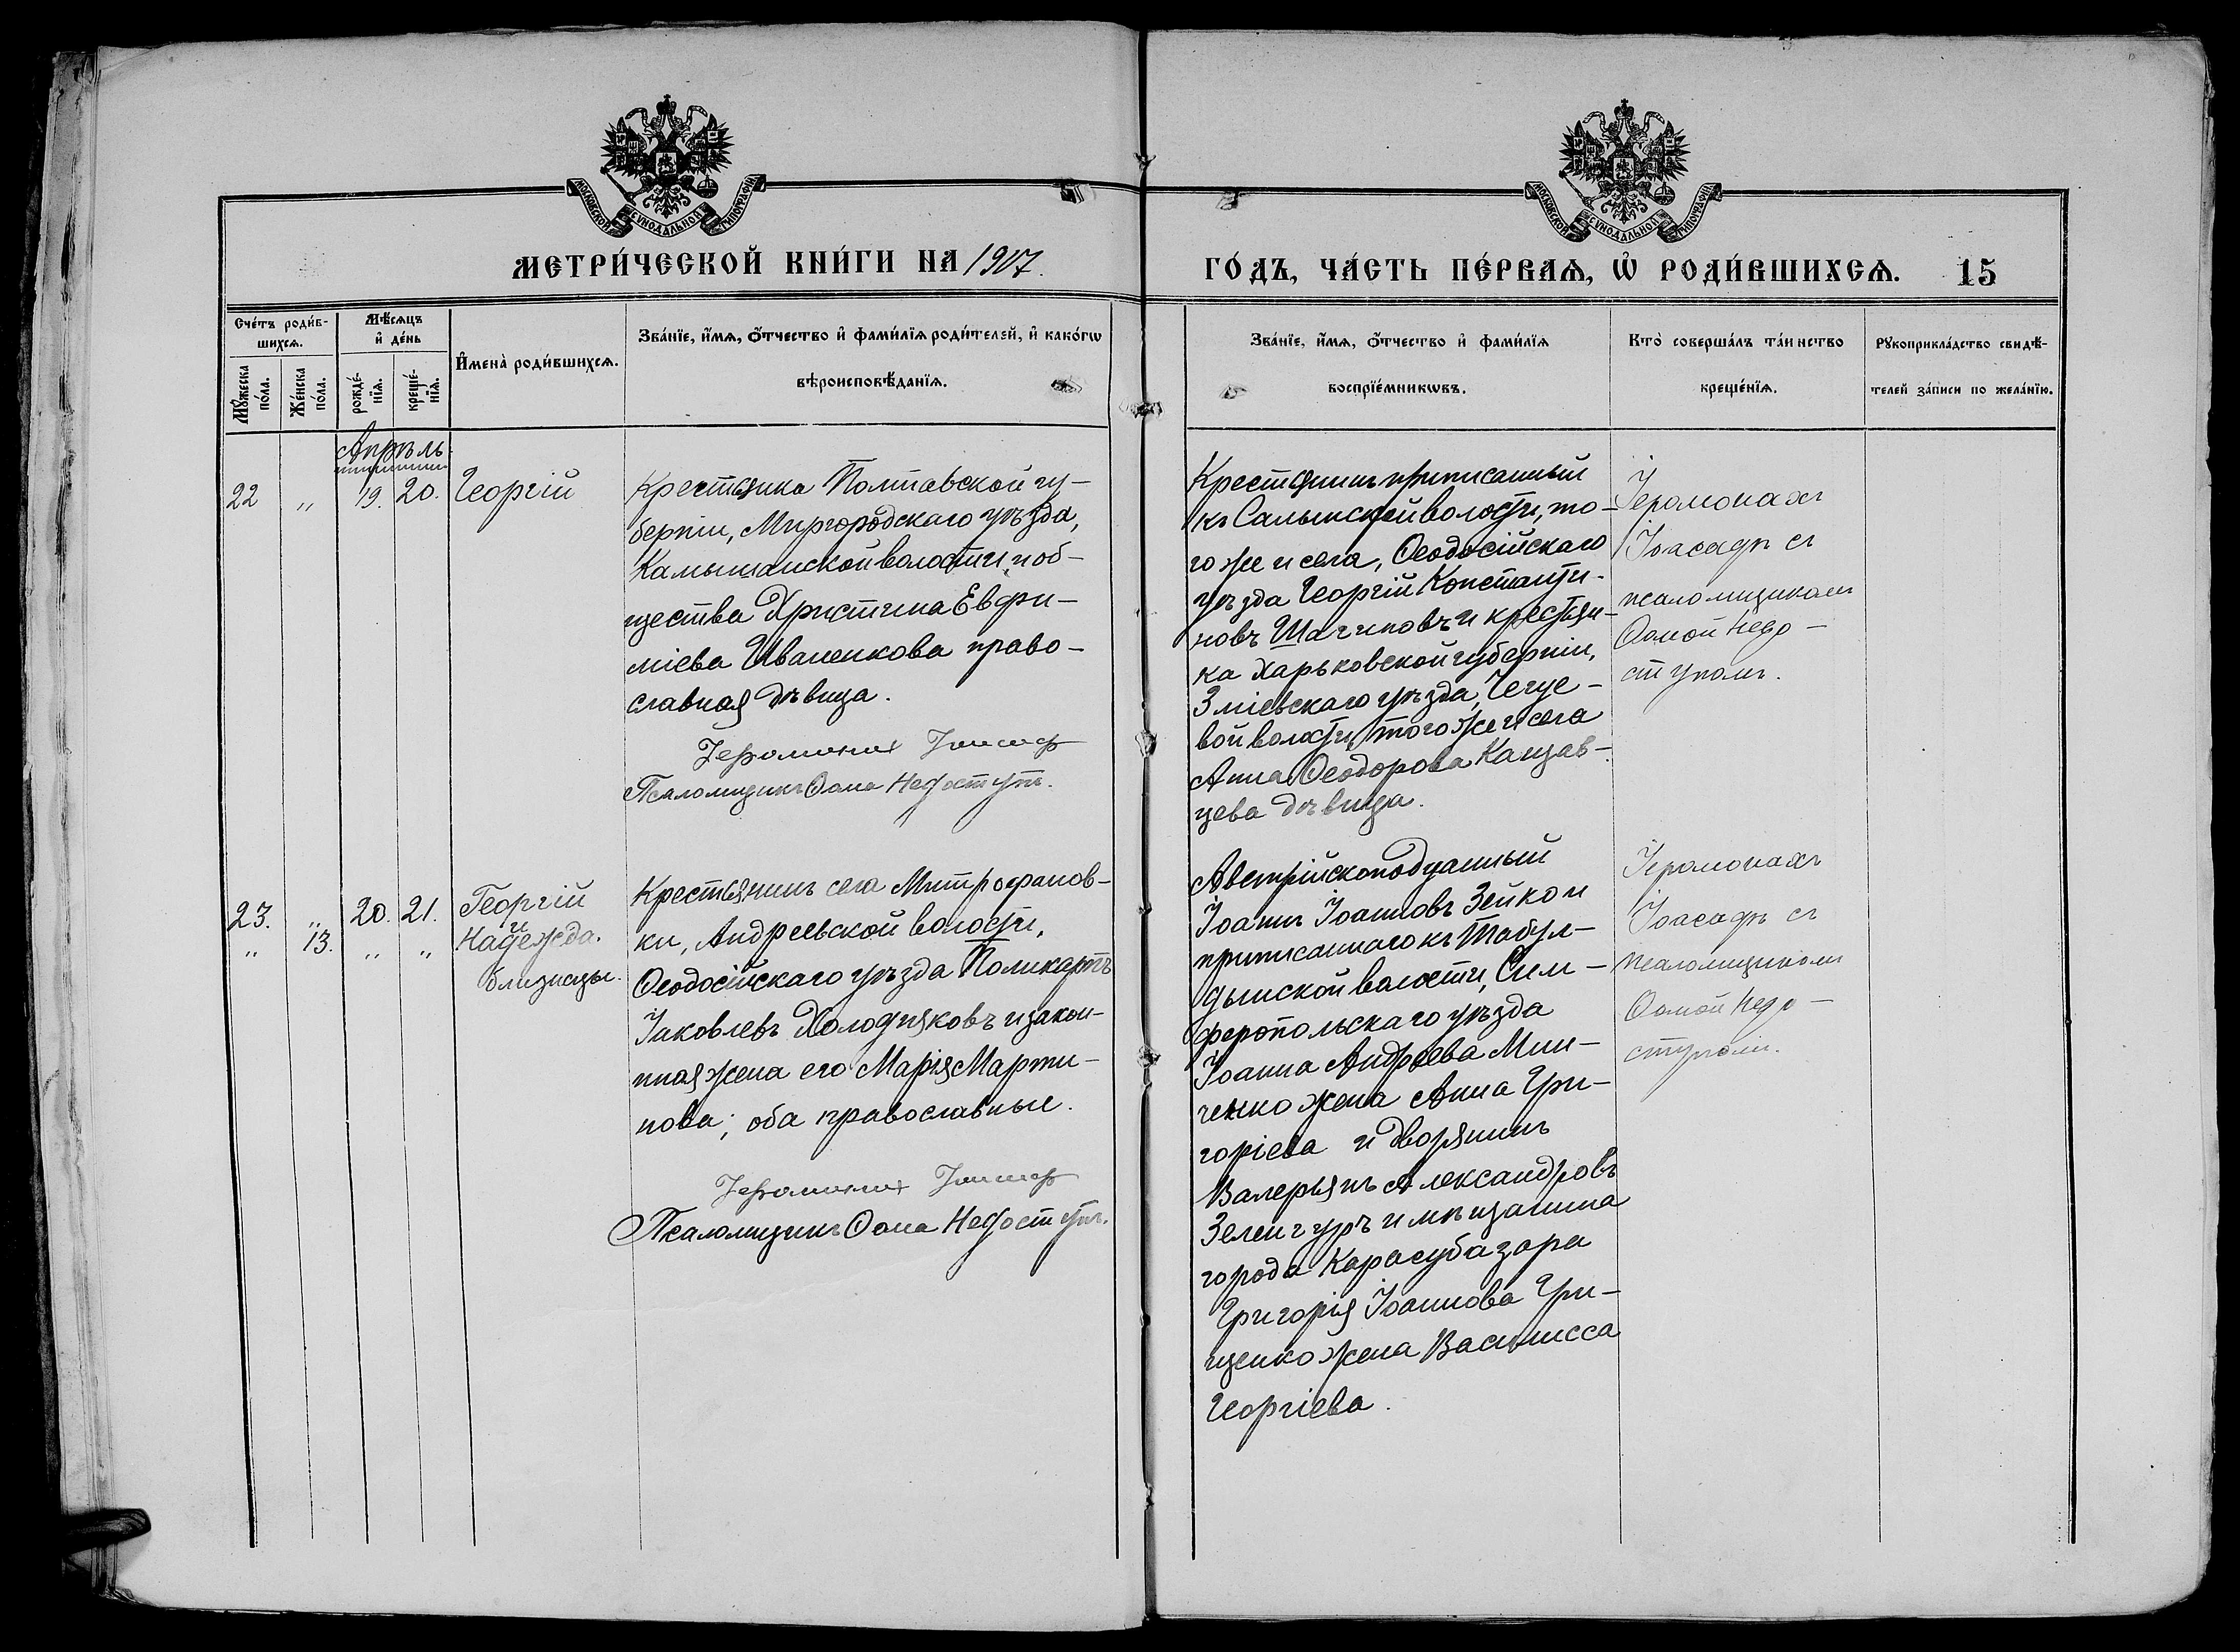 МОСКОВСКОЙ СѴНОДАЛЬНОЙ ТИПОГРАФІИ
МОСКОВСКОЙ СѴНОДАЛЬНОЙ ТИПОГРАФІИ
МЕТРИ́ЧЕСКОЙ КНИ́ГИ НА 1907.
ГО́ДЪ, ЧА́СТЬ ПЕ́РВАѦ, Ѡ҆ РОДИ́ВШИХСѦ. 15
Сче́тъ роди́в-
шихсѧ.
Мꙋ́жеска по́ла.
Же́нска по́ла.
Мѣ́сѧцъ
и҆ де́нь
рожде́-
нїѧ.
креще́-
нїѧ.
И҆мена̀ роди́вшихсѧ.
Зва́нїе, и҆́мѧ, ѻ҆́тчество и҆ фами́лїѧ роди́телей, и҆ како́гѡ
вѣроисповѣ́данїѧ.
Зва́нїе, и҆́мѧ, ѻ҆́тчество и҆ фами́лїѧ
воспрїе́мникѡвъ.
Кто̀ соверша́лъ та́инство
креще́нїѧ.
Рꙋкоприкла́дство свидѣ́-
телей за́писи по жела́нїю.
Апрѣль
22 „ 19. 20. Георгій
Крестьянка Полтавской гу-
берніи, Миргородскаго уѣзда,
Камышанской волости и об-
щества Христина Евфи-
міева Иваненкова право-
славная дѣвица.
Іеромонах Іоасаф
Псаломщикъ Ѳома Недоступъ.
Крестьянинъ приписанный
къ Салынской волости, то-
го же и села, Ѳеодосійскаго
уѣзда Георгій Константи-
новъ Шагиновъ и крестьян-
ка Харьковской губерніи,
Зміевскаго уѣзда, Чегуе-
вой волости, того же и села
Анна Ѳеодорова Канцав-
цева дѣвица.
Іеромонахъ
Іоасафъ съ
псаломщикомъ
Ѳомой Недо-
ступомъ.
23. „ 20. 21. Георгій
и
„ 13. „ „ Надежда.
близнецы.
Крестьянинъ села Митрофанов-
ки, Андреевской волости,
Ѳеодосійскаго уѣзда Поликарпъ
Іаковлевъ Холодняковъ и закон-
ная жена его Марія Марти-
нова; оба православные.
Іеромонах Іоасаф
Псаломщикъ Ѳома Недоступъ.
Австрійскоподданный
Іоаннъ Іоанновъ Зейкон
приписаннаго къ Табул-
дынской волости, Сим-
феропольскаго уѣзда
Іоанна Андреева Мин-
ченко жена Анна Гри-
горіева и дворянинъ
Валерьянъ Александровъ
Зеленгуръ и мѣщанина
города Карасубазара
Григорія Іоаннова Гри-
щенко жена Василисса
Георгіева.
Іеромонахъ
Іоасафъ съ
псаломщикомъ
Ѳомой Недо-
ступомъ.